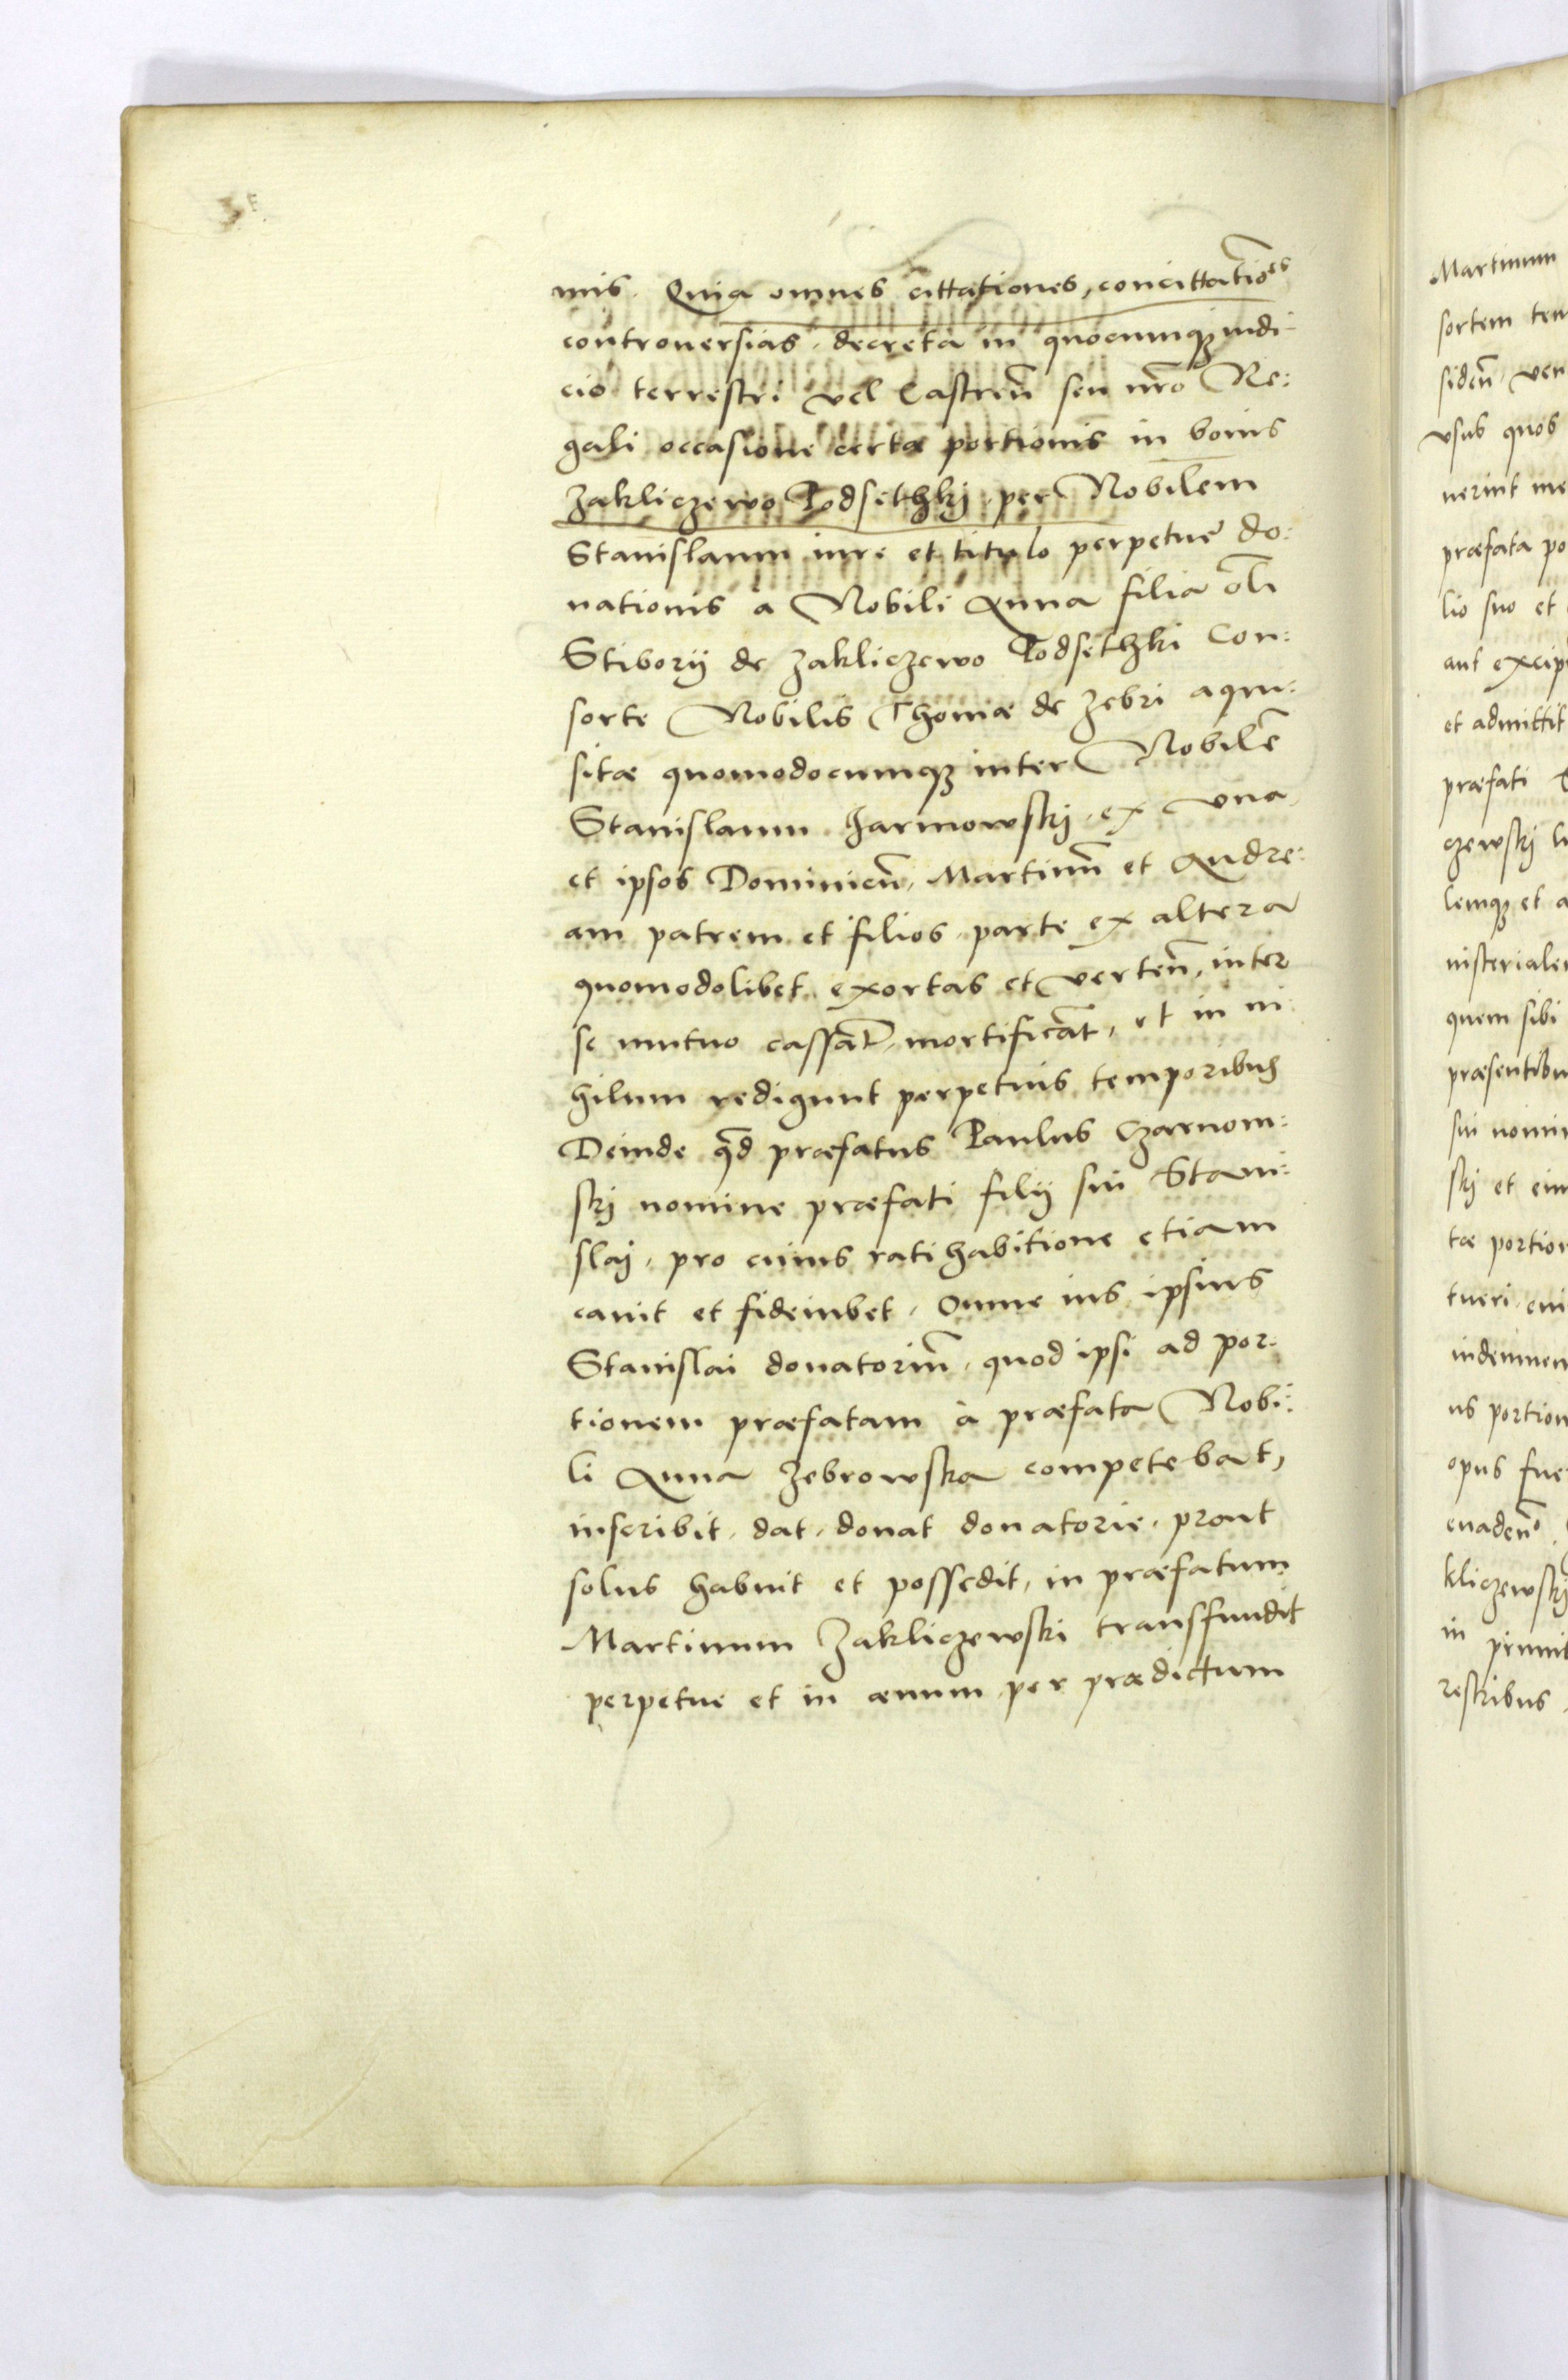 mis. Quia omnes cittationes, concittatio͠es
controuersias, decreta in quocumqꝫ iudi-
cio terrestri vel Castren̄ seu nr̄o Re:
gali occasione certæ portionis in bonis
Zakliczewo Podsethzkj per Nobilem
Stanislaum iure et titulo perpetuę do:
nationis a Nobili Anna filia ol̄i
Stiborij de Zakliczewo Podsethzki Con:
sorte Nobilis Thomæ de Zebri aqui:
sitæ quomodocumqꝫ inter Nobilē
Stanislaum Czarnowskj, ex vna
et ipsos Dominicū, Martinū et Andre:
am patrem et filios, parte ex altera
quomodolibet exortas et verten̄, inter
se mutuo cassan̄t, mortifican̄t, et in ni
hilum redigunt perpetuis temporibus
Deinde qd̄ præfatus Paulus Czarnow:
skj nomine præfati filij sui Stani:
slaj, pro cuius ratihabitione etiam
cauit et fideiubet, Omne ius ipsius
Stanislai donatoriū, quod ipsi ad por:
tionem præfatam à præfata Nobi:
li Anna Zebrowska competebat,
inscribit, dat, donat donatorie, prout
solus habuit et possedit, in præfatum
Martinum Zakliczewski transfundit
perpetue et in æuum per prædictum
Martinum
sortem ten
siden̄ ven
vsus quos
uerint
præfata po
lio suo et
aut excip
et admittit
præfati
czewskj
lemqꝫ et a
nisteriale
quem sibi
præsentibu
sui nomin
skj et eiu
tæ portion
tueri, eui
indemnem
us portion
opus fue
euaden̄
kliczewskj
in
restribus